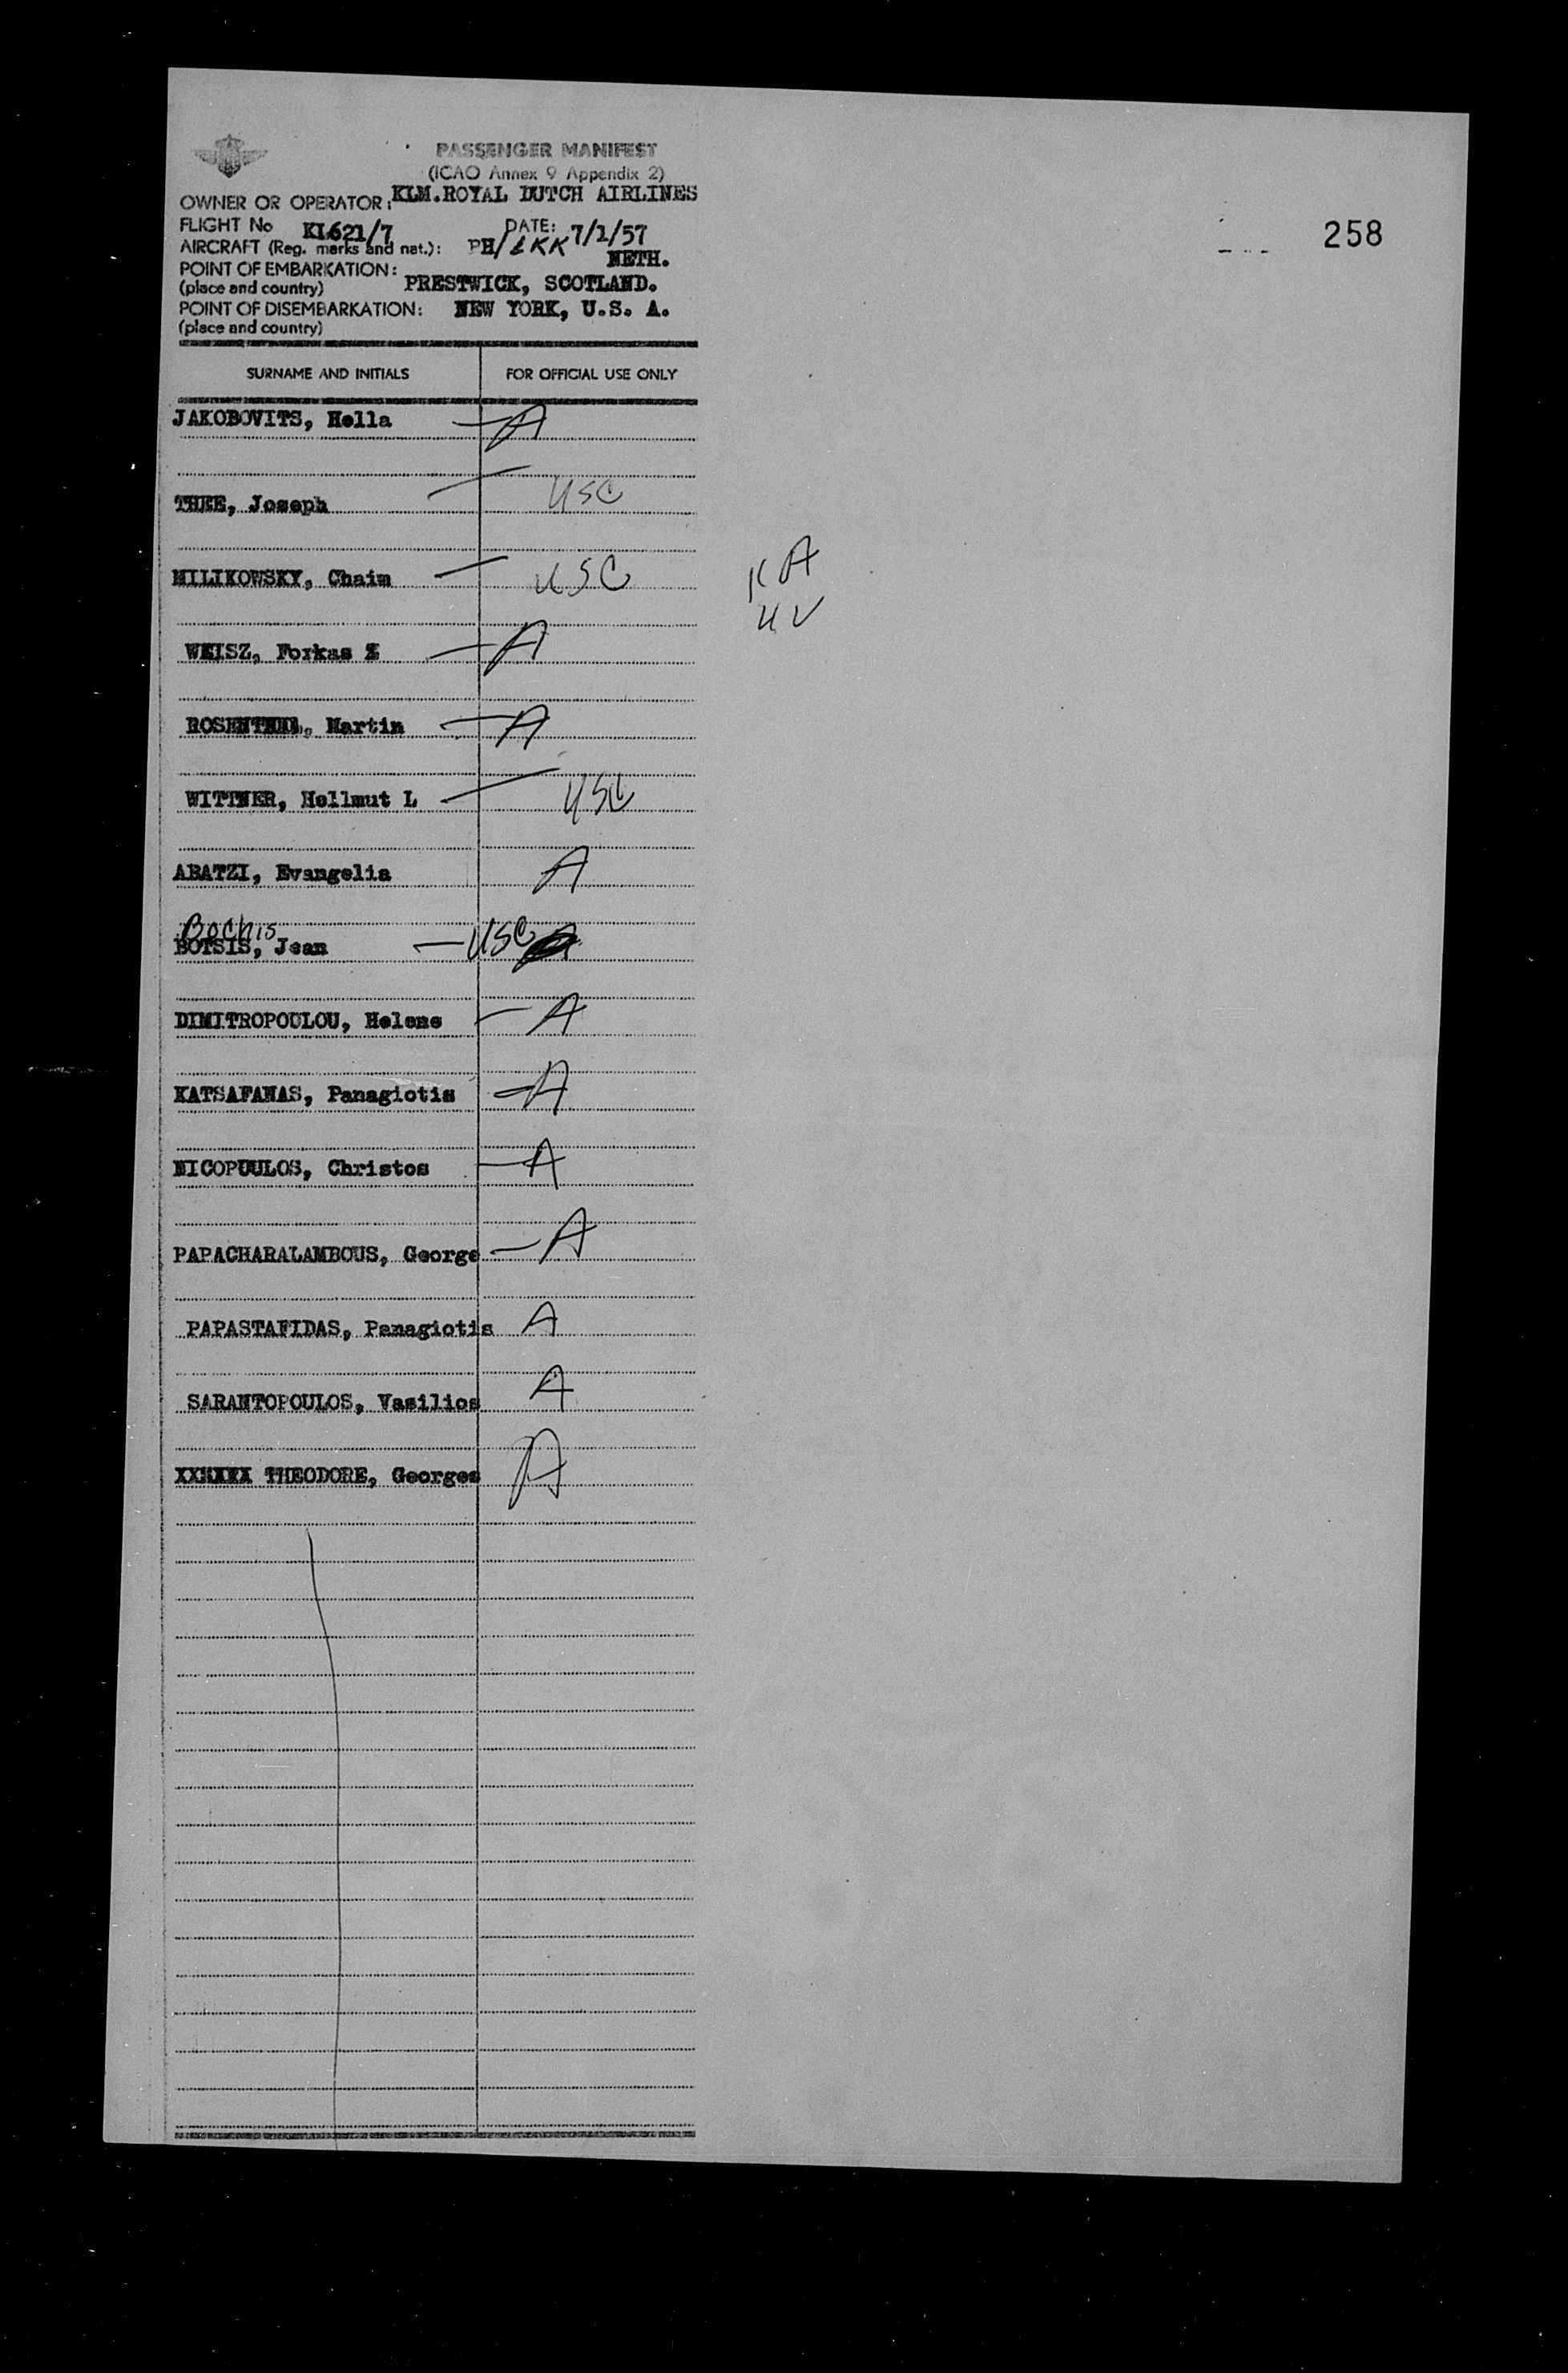 PASSENGER MANIFEST
(ICAO Annex 9 Appendix 2)
OWNER OR OPERATOR: KLM.ROYAL DUTCH AIRLINES
FLIGHT No KL621/7 DATE: 7/1/57
AIRCRAFT (Reg. marks and nat.): PH/LKK NETH.
POINT OF EMBARKATION:
(place and country) PRESTWICK, SCOTLAND.
POINT OF DISEMBARKATION: NEW YORK, U.S. A.
(place and country)
258
SURNAME AND INITIALS FOR OFFICIAL USE ONLY
JAKOBOVITS, Hella — A
THEE, Joseph — USC
MILIKOWSKY, Chaim — USC
K A
U V
WEISZ, Forkas — A
Martin — A
WITTNER, Hellmut L — USC
ABATZI, Evangelia A
Bochis
BOTSIS, Jean — USC
DIMITROPOULOU, Helene — A
KATSAFANAS, Panagiotis — A
NICOPOULOS, Christos — A
PAPACHARALAMBOUS, George — A
PAPASTAFIDAS, Panagiotis A
SARANTOPOULOS, Vasilios A
THEODORE, Georges A